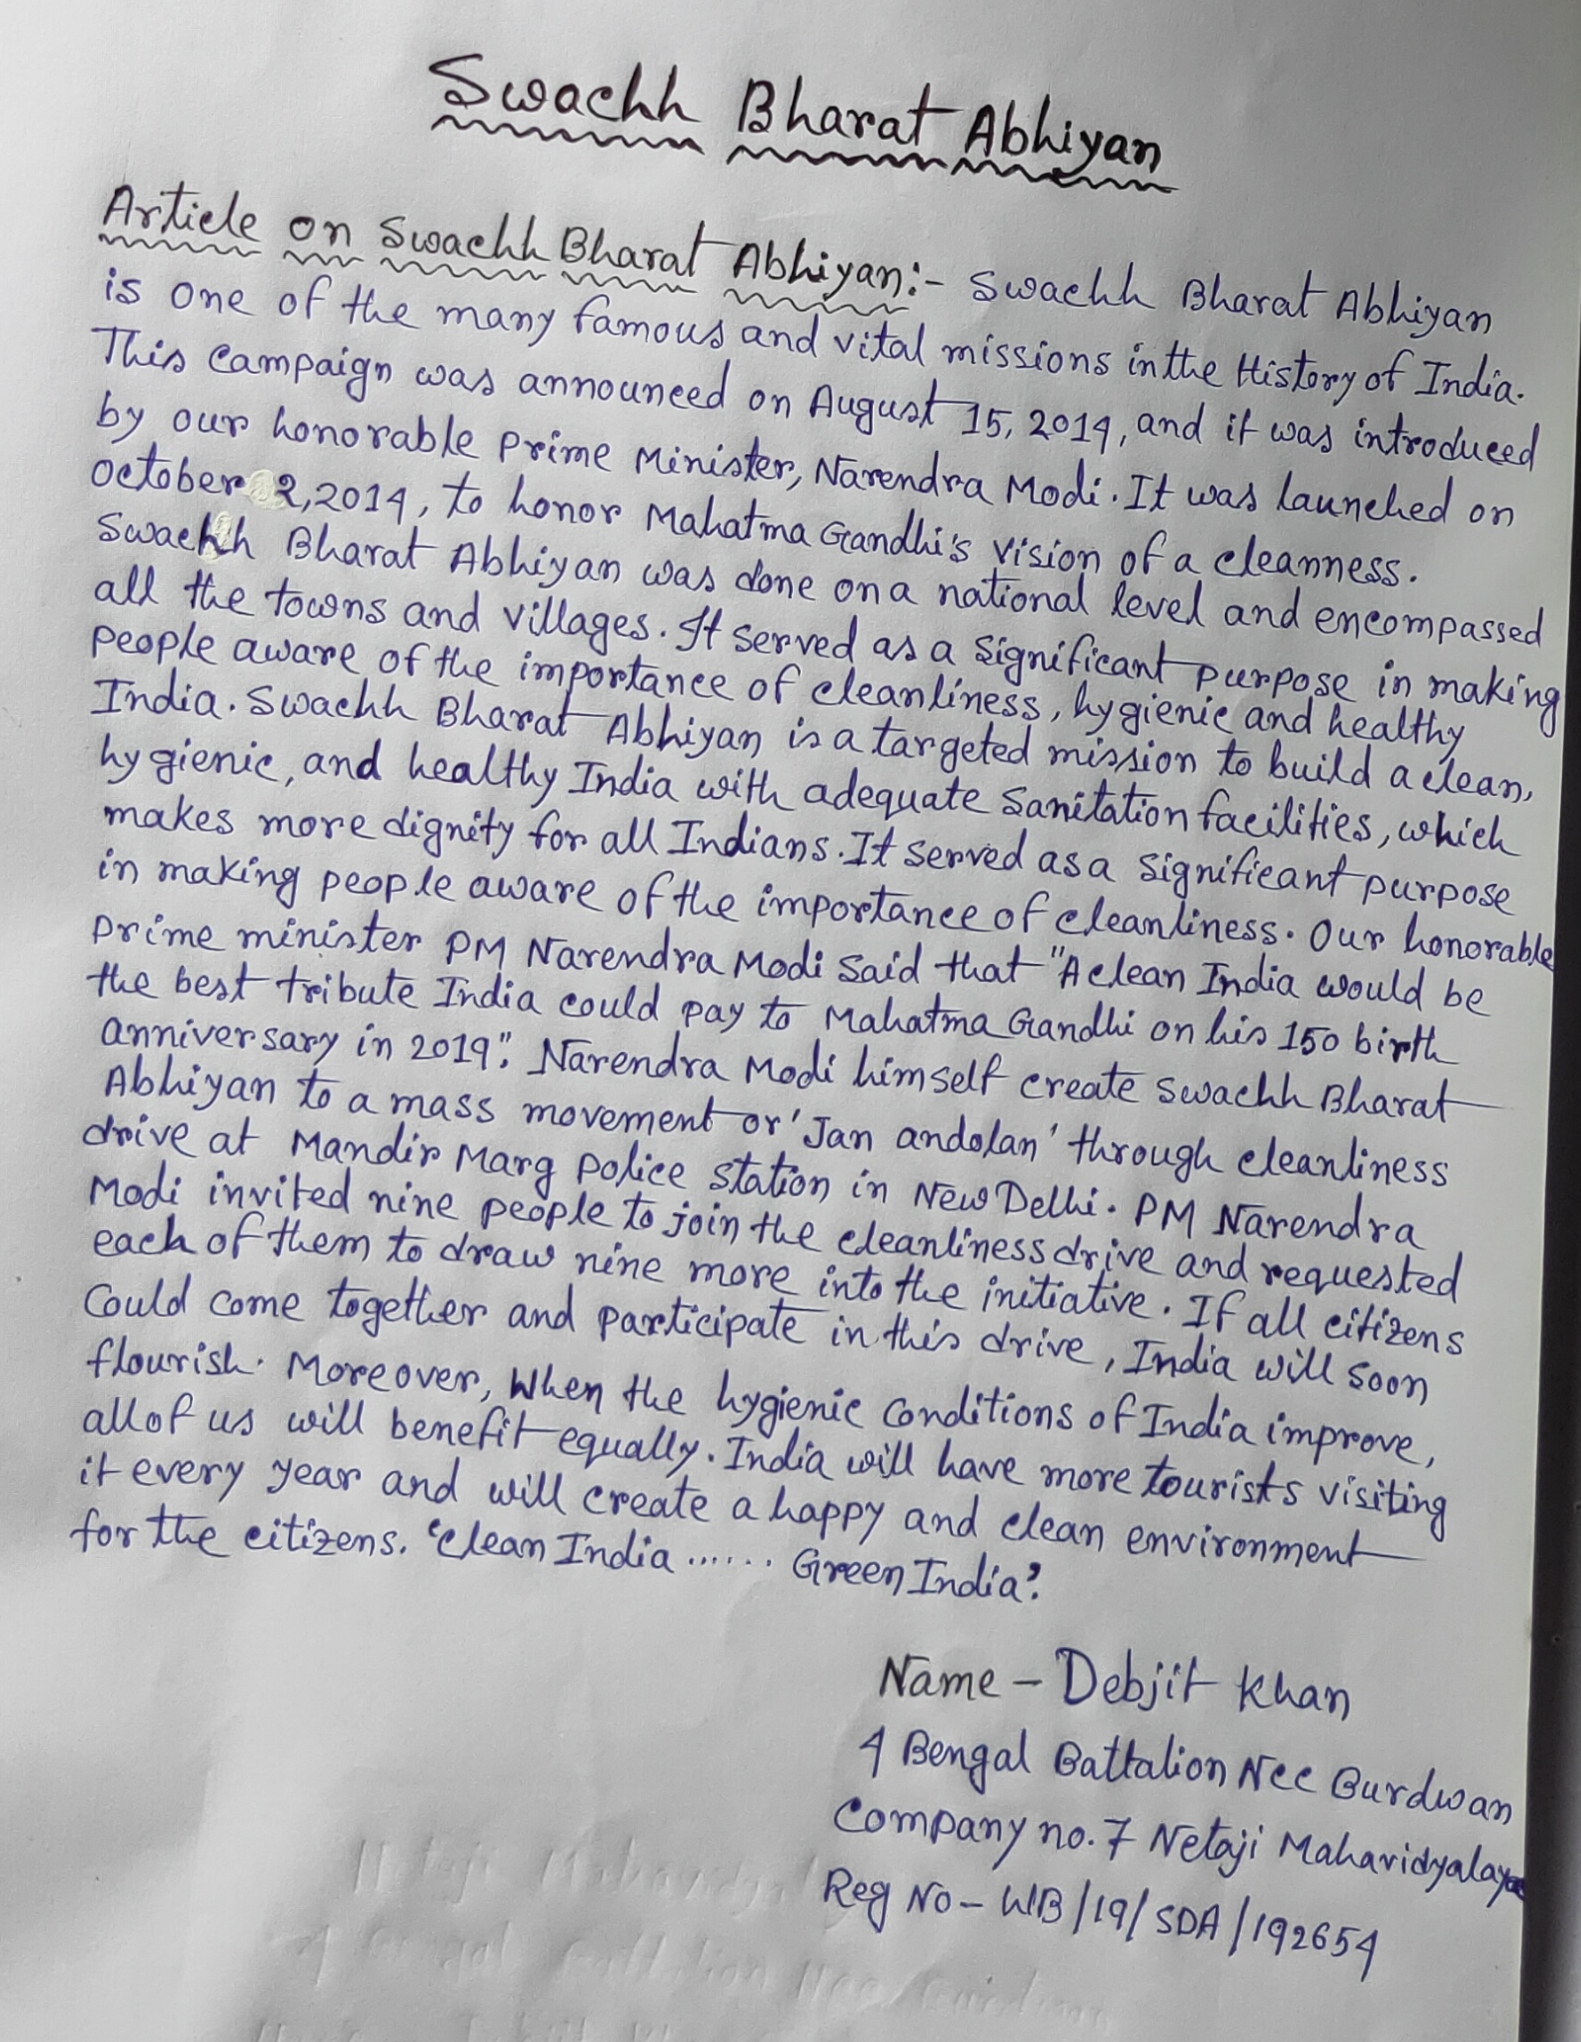 Swachh Bharat Abhiyan
Article on Swachh Bharat Abhiyan:- Swachh Bharat Abhiyan
is one of the many famous and vital missions in the History of India.
This Campaign was announced on August 15, 2014, and it was introduced
by our honorable Prime Minister, Narendra Modi. It was launched on
October 2, 2014, to honor Mahatma Gandhi's vision of a cleanness.
Swachh Bharat Abhiyan was done on a national level and encompassed
all the towns and villages. It served as a significant purpose in making
people aware of the importance of cleanliness, hygienic and healthy
India. Swachh Bharat Abhiyan is a targeted mission to build a clean,
hygienic, and healthy India with adequate sanitation facilities, which
makes more dignity for all Indians. It served as a significant purpose
in making people aware of the importance of cleanliness. Our honorable
prime minister PM Narendra Modi said that "A clean India would be
the best tribute India could pay to Mahatma Gandhi on his 150 birth
anniversary in 2019". Narendra Modi himself create Swachh Bharat
Abhiyan to a mass movement or 'Jan andolan' through cleanliness
drive at Mandir Marg Police Station in New Delhi. PM Narendra
Modi invited nine people to join the cleanliness drive and requested
each of them to draw nine more into the initiative. If all citizens
Could come together and participate in this drive, India will soon
flourish. Moreover, When the hygienic conditions of India improve,
all of us will benefit equally. India will have more tourists visiting
it every year and will create a happy and clean environment
for the citizens. 'Clean India ...... Green India'.
Name - Debjit Khan
4 Bengal Battalion Ncc Burdwan
Company no. 7 Netaji Mahavidyalaya
Reg No - WB/19/SDA/192654